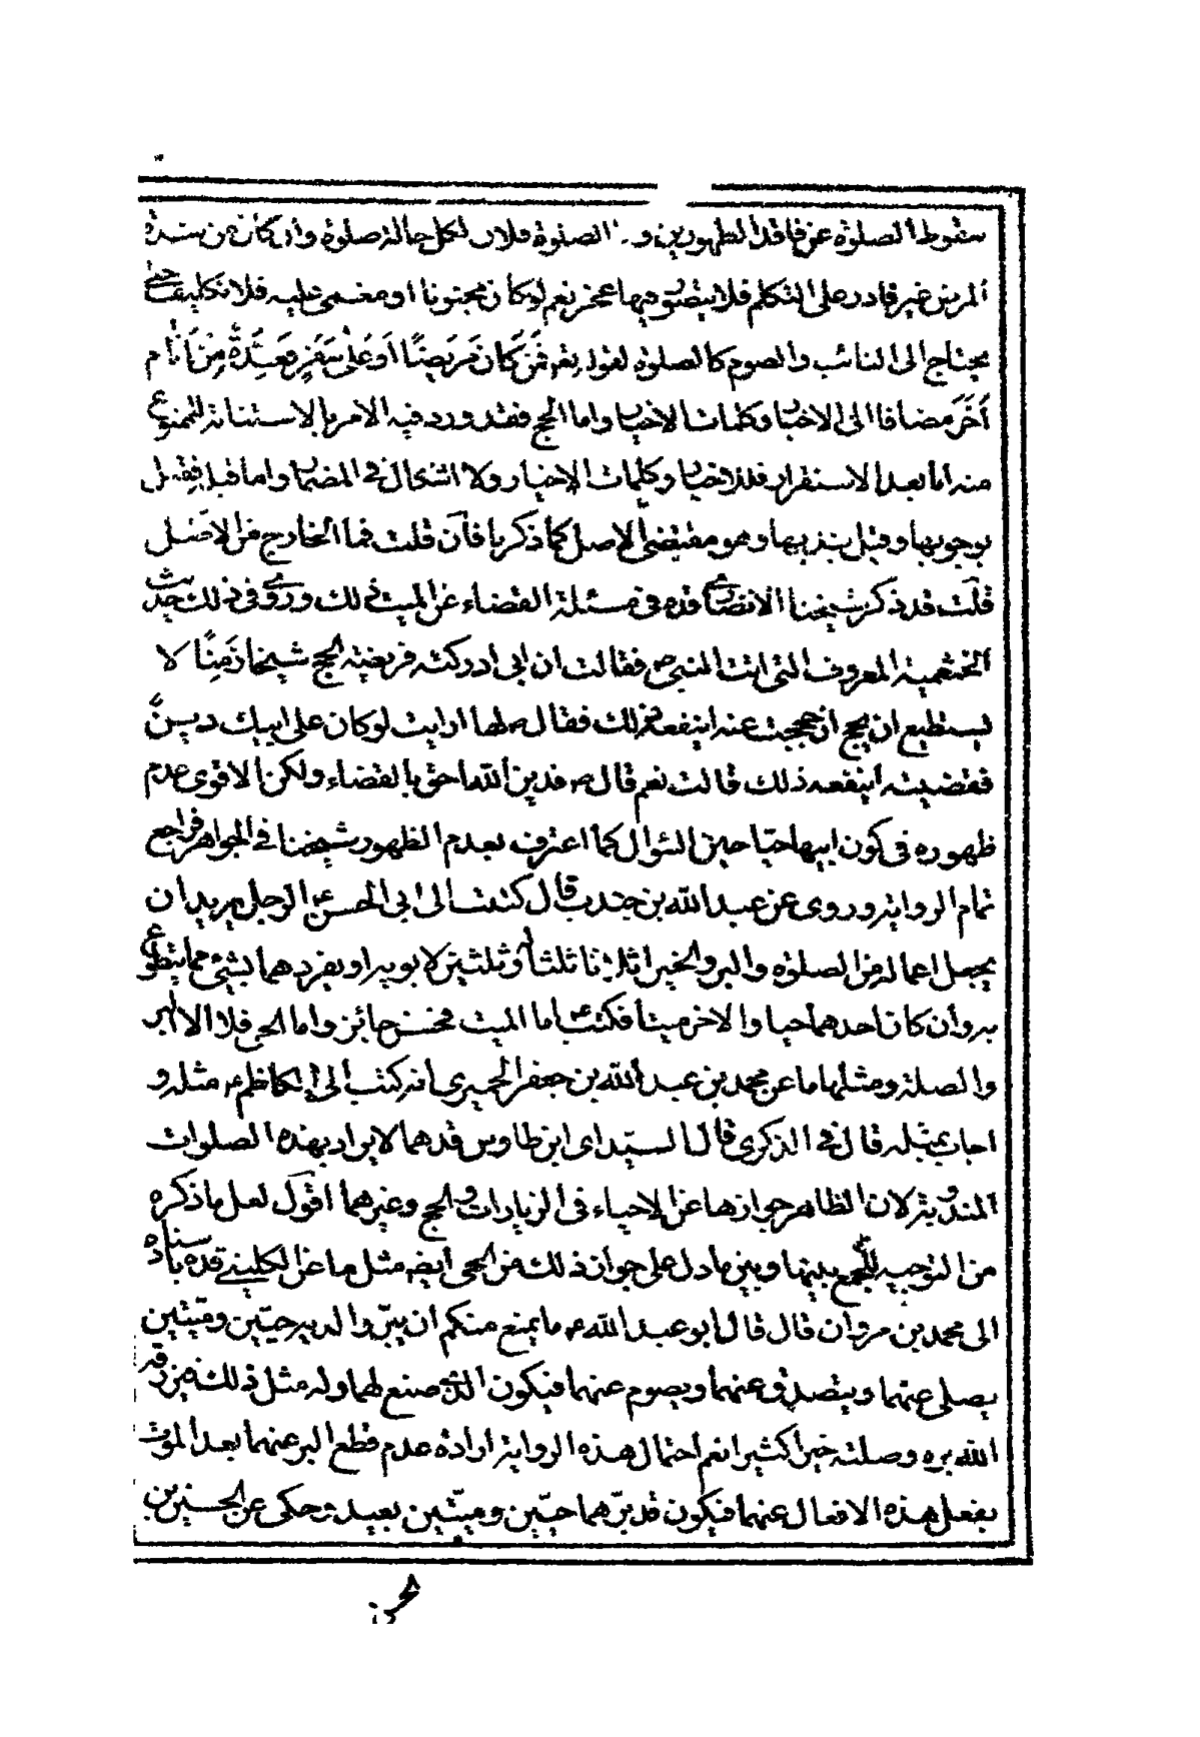 سقوط الصلوة عن فاقد الطهورين و الصلوة فلان لكل حالة صلوة وان كان من شدة
المرض غير قادر على التكلم فلا يتصور فيها عجز نعم لو كان مجنونا او مغمى عليه فلا تكليف حتى
يحتاج الى النائب والصوم كالصلوة لقوله تعر فَمَن كَانَ مَرِيضًا اَو عَلى سَفَرٍ فَعِدَّةٌ مِن اَيَّام
اُخَرَ مضافا الى الاخبار وكلمات الاخيار واما الحج فقد ورد فيه الامر بالاستنابة للممنوع
منه اما بعد الاستقرار فللاخبار وكلمات الاخيار ولا اشكال فى المضمار واما قبله فقيل
بوجوبها وقيل بندبها وهو مقتضى الاصل كما ذكرنا فان قلت فما الخارج من الاصل
قلت قد ذكر شيخنا الانصارى قده فى مسئلة القضاء عن الميت ذلك وروى فى ذلك حديث
الخثعمية المعروف التى اتت النبى ص فقالت ان ابى ادركته فريضة الحج شيخا زَمِنًا لا
يستطيع ان يحج ان حججت عنه اينفعه ذلك فقال ص لها ارايت لو كان على ابيك دينٌ
فقضيته اينفعه ذلك قالت نعم قال ص فدين الله احق بالقضاء ولكن الاقوى عدم
ظهوره فى كون ابيها حيّا حين السؤال كما اعترف بعدم الظهور شيخنا فى الجواهر فراجع
تمام الرواية وروى عن عبد الله بن جندب قال كتبت الى ابى الحسن ع الرجل يريد ان
يجعل اعماله من الصلوة والبر والخير اثلاثا ثلثا له وثلثين لابويه او يفردهما بشئ مما يتطوع
به وان كان احدهما حيا والاخر ميتا فكتب ع اما الميت فحسن جائز واما الحى فلا الا البر
والصلة ومثلها ما عن محمد بن عبد الله بن جعفر الحميرى انه كتب الى الكاظم ع مثله و
اجاب بمثله قال فى الذكرى قال السيّد اى ابن طاوس قدهما لايراد بهذه الصلوات
المندوبة لان الظاهر جوازها عن الاحياء فى الزيارات والحج وغيرهما اقول لعل ما ذكره
من التوجيه للجمع بينها وبين ما دل على جواز ذلك عن الحى ايضه مثل ما عن الكلينى قده باسناده
الى محمد بن مروان قال قال ابو عبد الله ع ما يمنع منكم ان يبرّ والديه حيّين وميّتين
يصلى عنهما ويتصدق عنهما ويصوم عنهما فيكون الذى صنع لهما وله مثل ذلك فيزيده
الله ببره وصلته خيرا كثيرا نعم احتمال هذه الرواية ارادة عدم قطع البر عنهما بعد الموت
بفعل هذه الافعال عنهما فيكون قد برّهما حيّين وميّتين بعيد وحكى عن الحسين بن